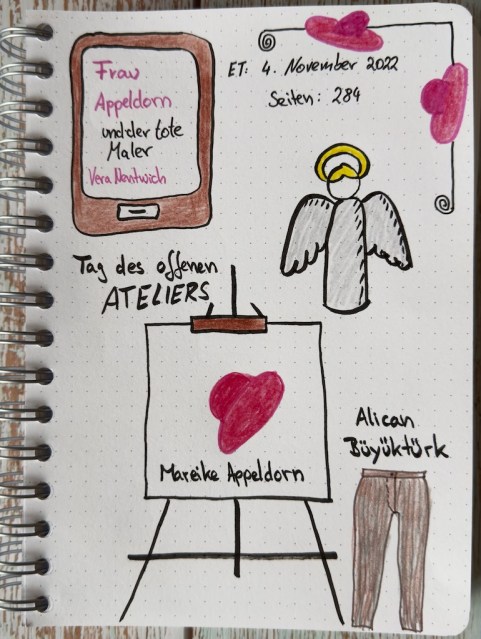 Frau
Appeldorn
und der tote
Maler
Vera Nentwich
ET: 4. November 2022
Seiten: 284
Tag des offenen
ATELIERS
Mareike Appeldorn
Alican
Büyüktürk